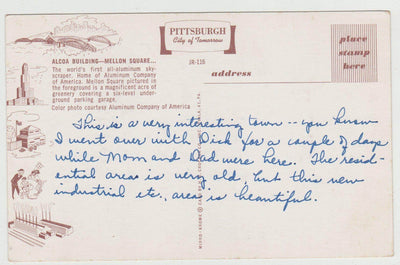 PITTSBURGH
City of Tomorrow
place
stamp
here
JR-116
address
ALCOA BUILDING—MELLON SQUARE...
The world's first all-aluminum sky-
scraper. Home of Aluminum Company
of America. Mellon Square pictured in
the foreground is a magnificent acre of
greenery covering a six-level under-
ground parking garage.
Color photo courtesy Aluminum Company of America
This is a very interesting town -- you know
I went over with Dick for a couple of days
while Mom and Dad were here. The resid-
ential area is very old, but this new
industrial etc., area is beautiful.